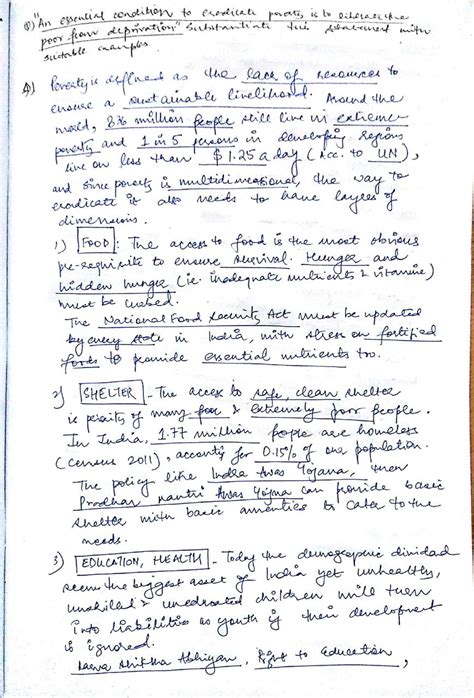 Q) "An essential condition to eradicate poverty is to liberate the
poor from deprivation" Substantiate this statement with
suitable examples.
A) Poverty is defined as the lack of resources to
ensure a sustainable livelihood. Around the
world, 836 million people still live in extreme
poverty and 1 in 5 persons in developing regions
live on less than $1.25 a day (Acc. to UN),
and since poverty is multidimensional, the way to
eradicate it also needs to have layers of
dimensions.
1) FOOD: The access to food is the most obvious
pre-requisite to ensure survival. Hunger and
hidden hunger (ie. inadequate nutrients & vitamins)
must be
The National Food Security Act must be updated
by every state in India, with stress on fortified
foods to provide essential nutrients too.
2) SHELTER - The access to safe, clean shelter
is priority of many poor & extremely poor people.
In India, 1.77 million people are homeless
(Census 2011), accounts for 0.15% of our population.
The policy like Indira Awas Yojana, then
Pradhan Mantri Awas Yojna can provide basic
shelter with basic amenities to cater to the
needs.
3) EDUCATION, HEALTH - Today the demographic dividend
seem the biggest asset of India yet unhealthy,
unskilled & uneducated children will turn
into liabilities as youth if their development
is ignored.
Sarva Shiksha Abhiyan, Right to Education,